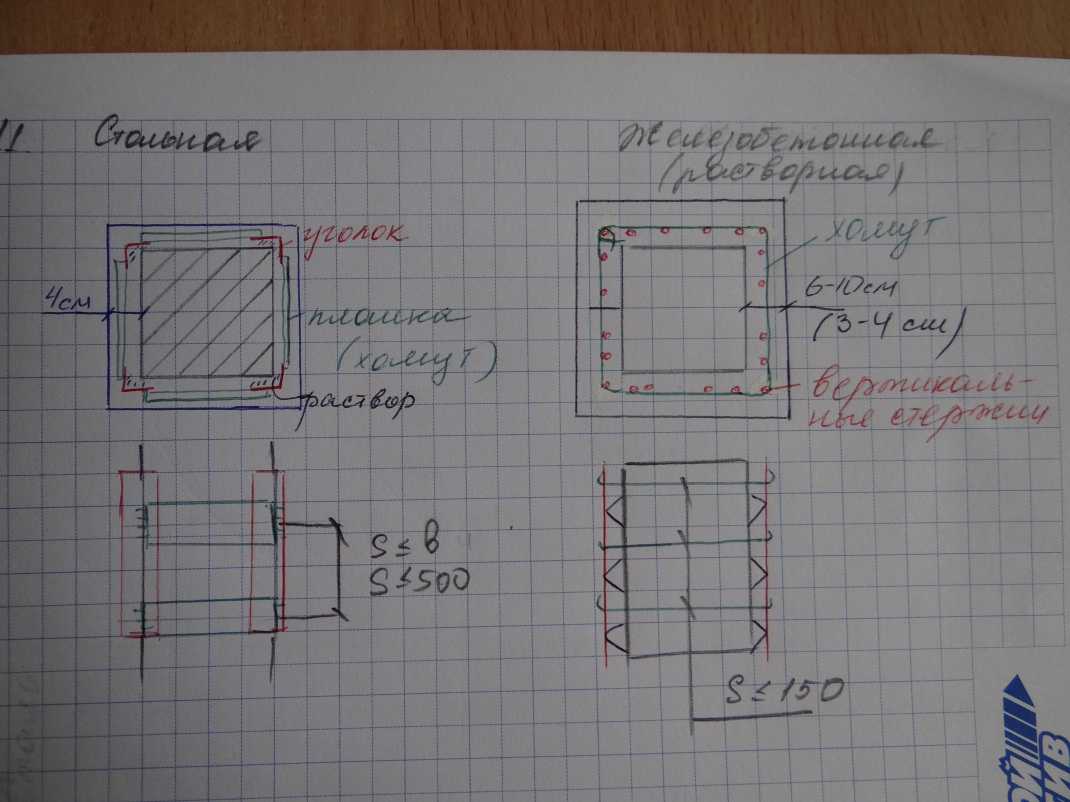 11 Стальная
Железобетонная
(растворная)
уголок
4см
планка
(хомут)
раствор
хомут
6-10см
(3-4 см)
вертикаль-
ные стержни
S ≤ в
S ≤ 500
S ≤ 150